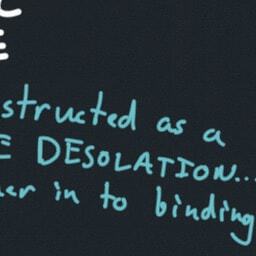 C
E
structed as a
E DESOLATION...
her in to binding